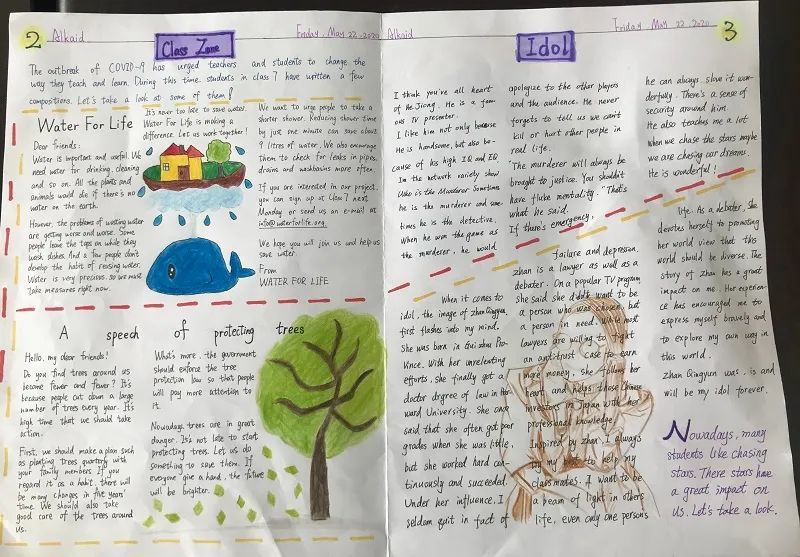 2 Alkaid Friday, May 22, 2020
Class Zone
The outbreak of COVID-9 has urged teachers and students to change the
way they teach and learn. During this time, students in class 7 have written a few
compositions. Let's take a look at some of them!
Water For Life
Dear friends:
Water is important and useful. We
need water for drinking, cleaning
and so on. All the plants and
animals would die if there's no
water on the earth.
However, the problems of wasting water
are getting worse and worse. Some
people leave the taps on while they
wash dishes. And a few people don't
develop the habit of reusing water.
Water is very precious, so we must
take measures right now.
It's never too late to save water.
Water For Life is making a
difference. Let us work together!
We want to urge people to take a
shorter shower. Reducing shower time
by just one minute can save about
9 litres of water. We also encourage
them to check for leaks in pipes,
drains and washbasins more often.
If you are interested in our project,
you can sign up at Class 7 next
Monday or send us an e-mail at
info@waterforlife.org.
We hope you will join us and help us
save water.
From
WATER FOR LIFE
A speech of protecting trees
Hello, my dear friends!
Do you find trees around us
become fewer and fewer? It's
because people cut down a large
number of trees every year. It's
high time that we should take
action.
First, we should make a plan such
as planting trees quarterly with
your family members. If you
regard it as a habit, there will
be many changes in five years'
time. We should also take
good care of the trees around
us.
What's more, the government
should enforce the tree
protection law so that people
will pay more attention to
it.
Nowadays trees are in great
danger. It's not late to start
protecting trees. Let us do
something to save them. If
everyone give a hand, the future
will be brighter.
Alkaid Friday May 22, 2020 3
Idol
I think you're all heart
of He Jiong. He is a fam
ous TV presenter.
I like him not only because
He is handsome, but also be-
cause of his high IQ and EQ.
In the network variety show
Who is the Murderer Sometimes
he is the murderer and some-
times he is the detective.
When he won the game as
the murderer, he would
apologize to the other players
and the audience. He never
forgets to tell us we can't
kill or hurt other people in
real life.
"The murderer will always be
brought to justice. You shouldn't
have fluke mentality." That's
what he said.
If there's emergency,
he can always slove it won-
derfully. There's a sense of
security around him
He also teaches me a lot
when we chase the stars maybe
we are chasing our dreams.
He is wonderful!
When it comes to
idol, the image of zhan Qingyun
first flashes into my mind.
She was born in Gui zhou Pro-
vince. With her unrelenting
efforts, she finally got a
doctor degree of law in Har-
ward University. She once
said that she often got poor
grades when she was little,
but she worked hard con-
tinuously and succeeded.
Under her influence, I
seldom quit in fact of
failure and depression.
zhan is a lawyer as well as a
debater. On a popular TV program
she said she didn't want to be
a person who was chosen but
a person in need. While most
lawyers are willing to fight
an antitrust case to earn
more money, she follows her
heart and helps those Chinese
investors in Japan with her
professional knowledge.
Inspired by zhan, I always
try my best to help my
classmates. I want to be
a beam of light in others'
life, even only one person's
life. As a debater, She
devotes herself to promoting
her world view that this
world should be diverse. The
story of Zhan has a great
impact on me. Her experien-
ce has encouraged me to
express myself bravely and
to explore my own way in
this world.
Zhan Qingyun was, is and
will be my idol forever.
Nowadays, many
students like chasing
stars. There stars have
a great impact on
us. Let's take a look.